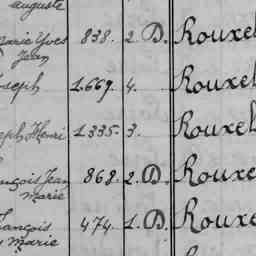 auguste
Marie Yves 838. 2. D. Rouxel
Jean
Joseph 1.669. 4. Rouxel
Joseph Henri 1335. 3. Rouxel
François Jean 868. 2. D. Rouxel
Marie
François 474. 1. D. Rouxel
Marie